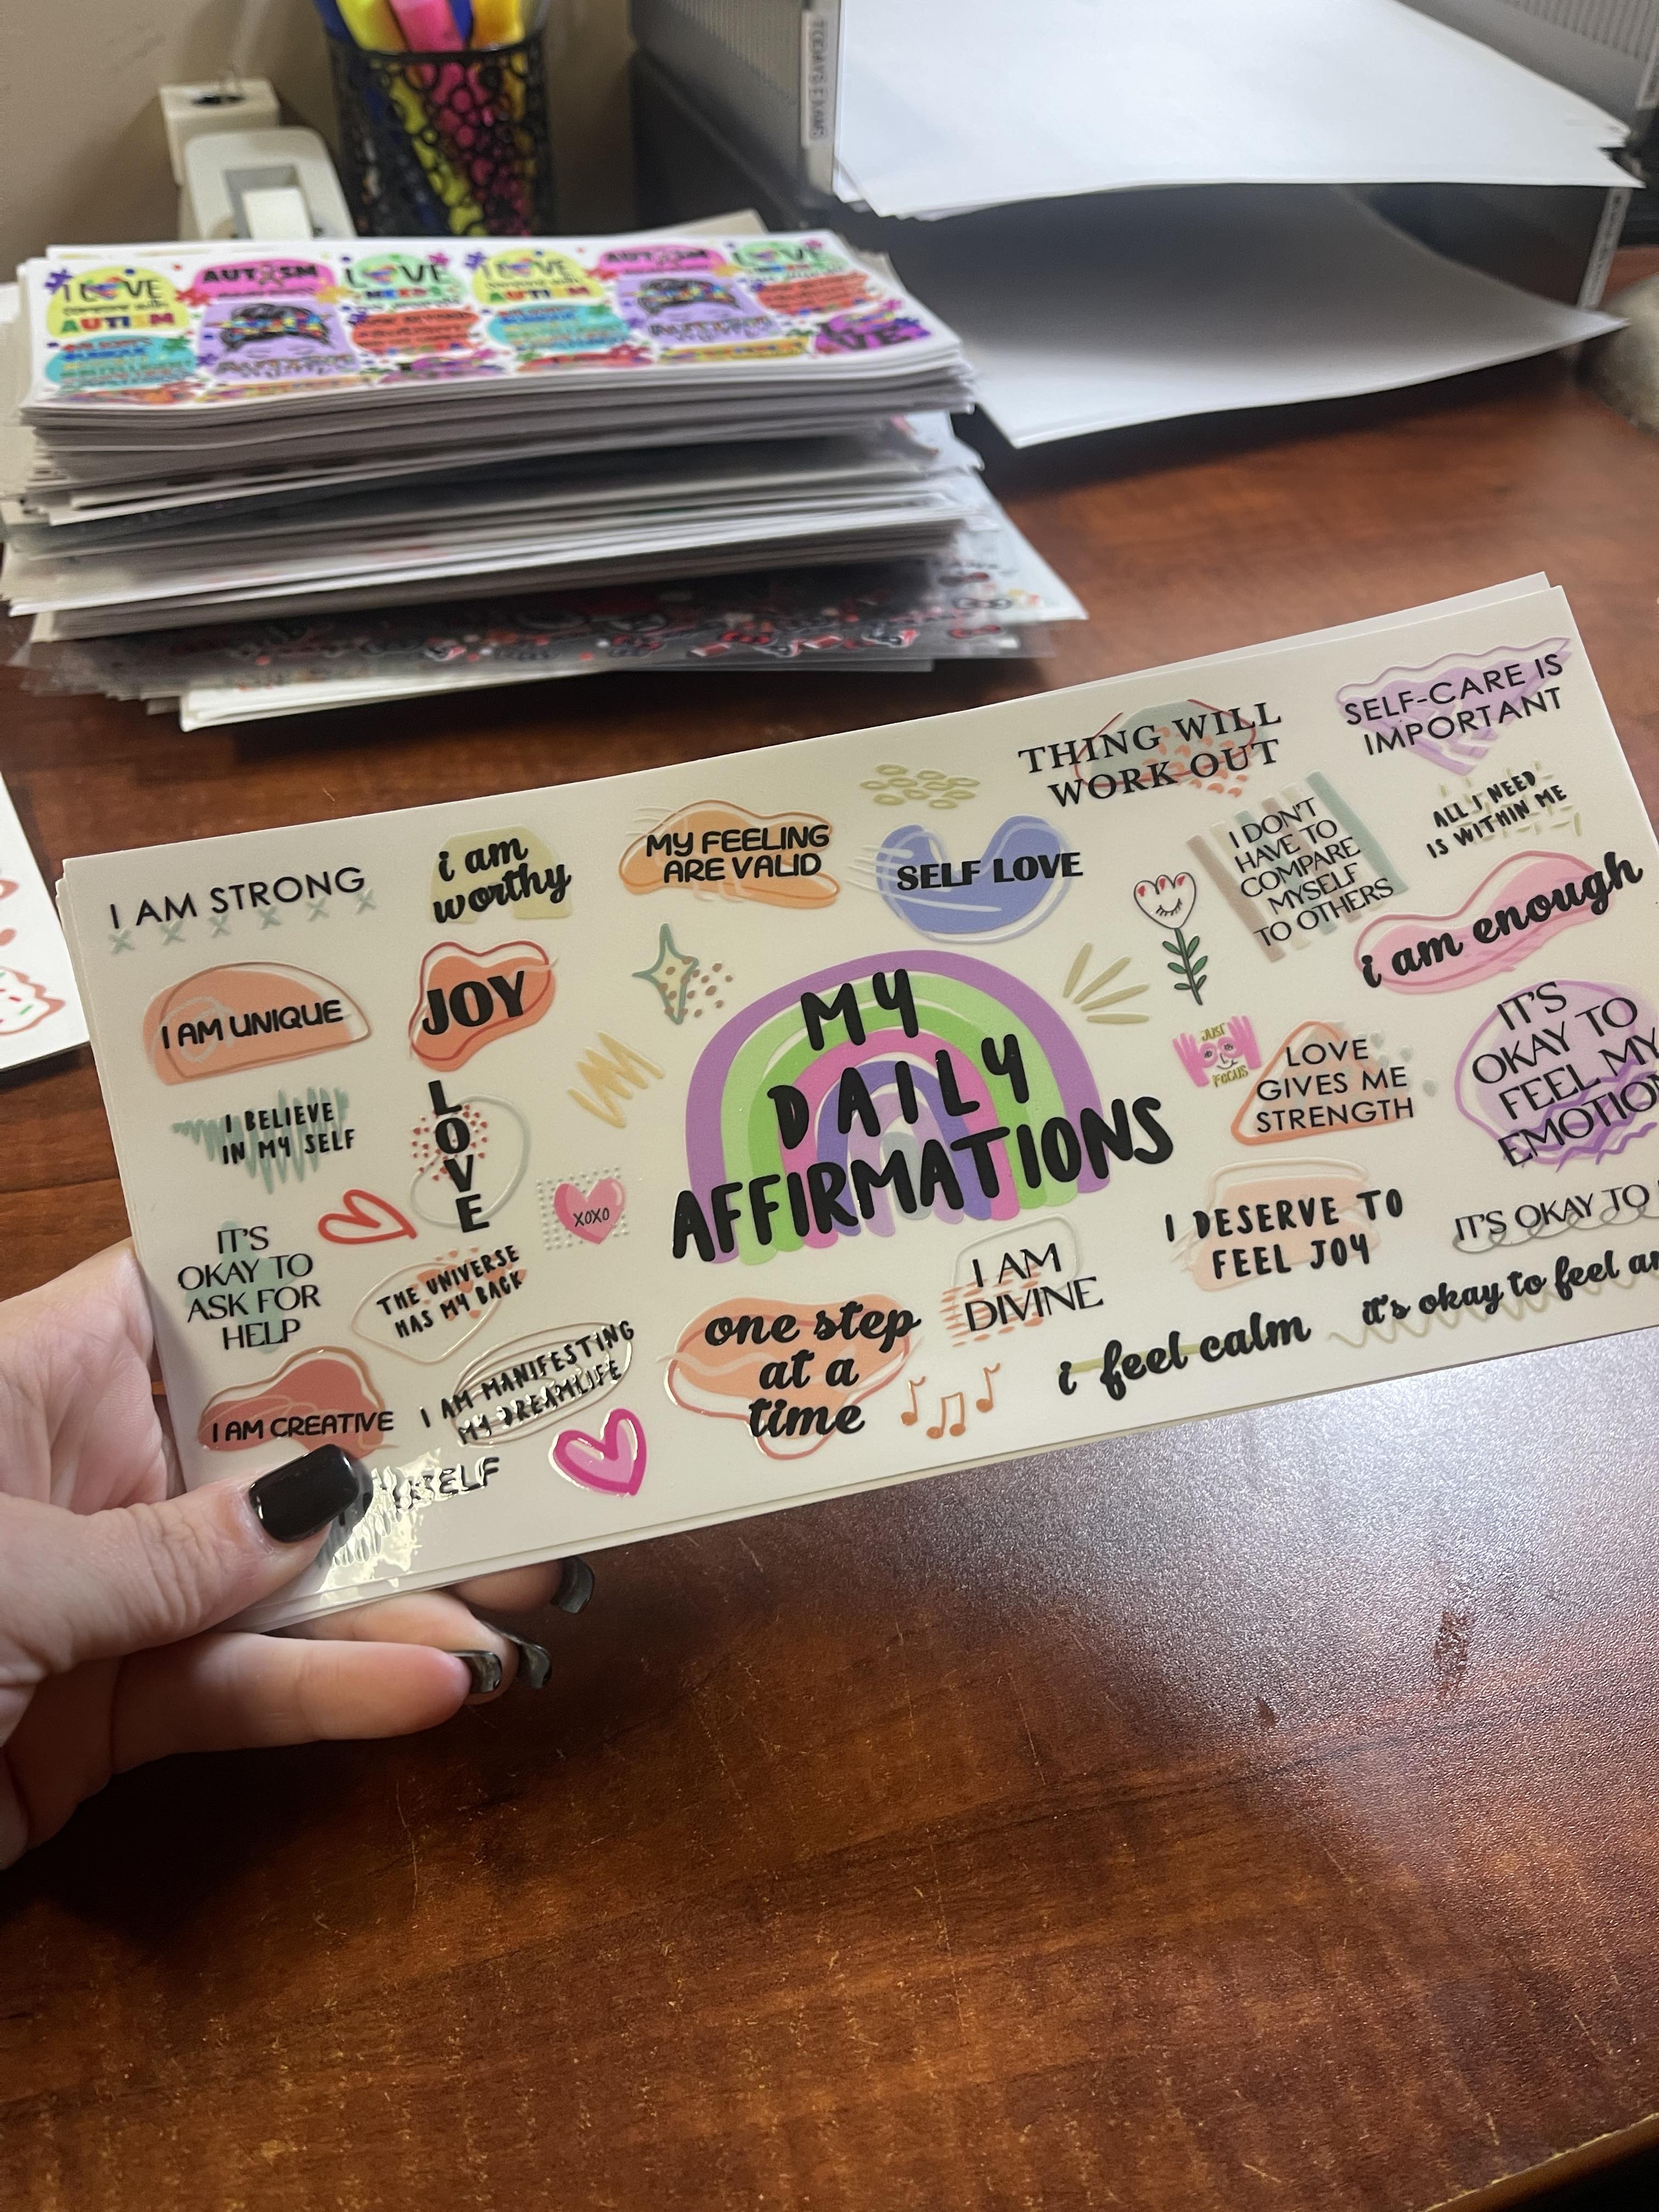 TODAYS EXAMS
I LOVE
someone with
AUTISM
AUTISM
LOVE
NEEDS
I LOVE
someone with
AUTISM
AUTISM
LOVE
THING WILL
WORK OUT
SELF-CARE IS
IMPORTANT
I AM STRONG
i am
worthy
MY FEELING
ARE VALID
SELF LOVE
I DON'T
HAVE TO
COMPARE
MYSELF
TO OTHERS
ALL I NEED
IS WITHIN ME
i am enough
I AM UNIQUE
JOY
MY
DAILY
AFFIRMATIONS
JUST
FOCUS
LOVE
GIVES ME
STRENGTH
IT'S
OKAY TO
FEEL MY
I BELIEVE
IN MY SELF
LOVE
XOXO
IT'S
OKAY TO
ASK FOR
HELP
THE UNIVERSE
HAS MY BACK
I AM
DIVINE
I DESERVE TO
FEEL JOY
IT'S OKAY TO
it's okay to feel
I AM CREATIVE
I AM MANIFESTING
MY DREAMLIFE
one step
at a
time
i feel calm